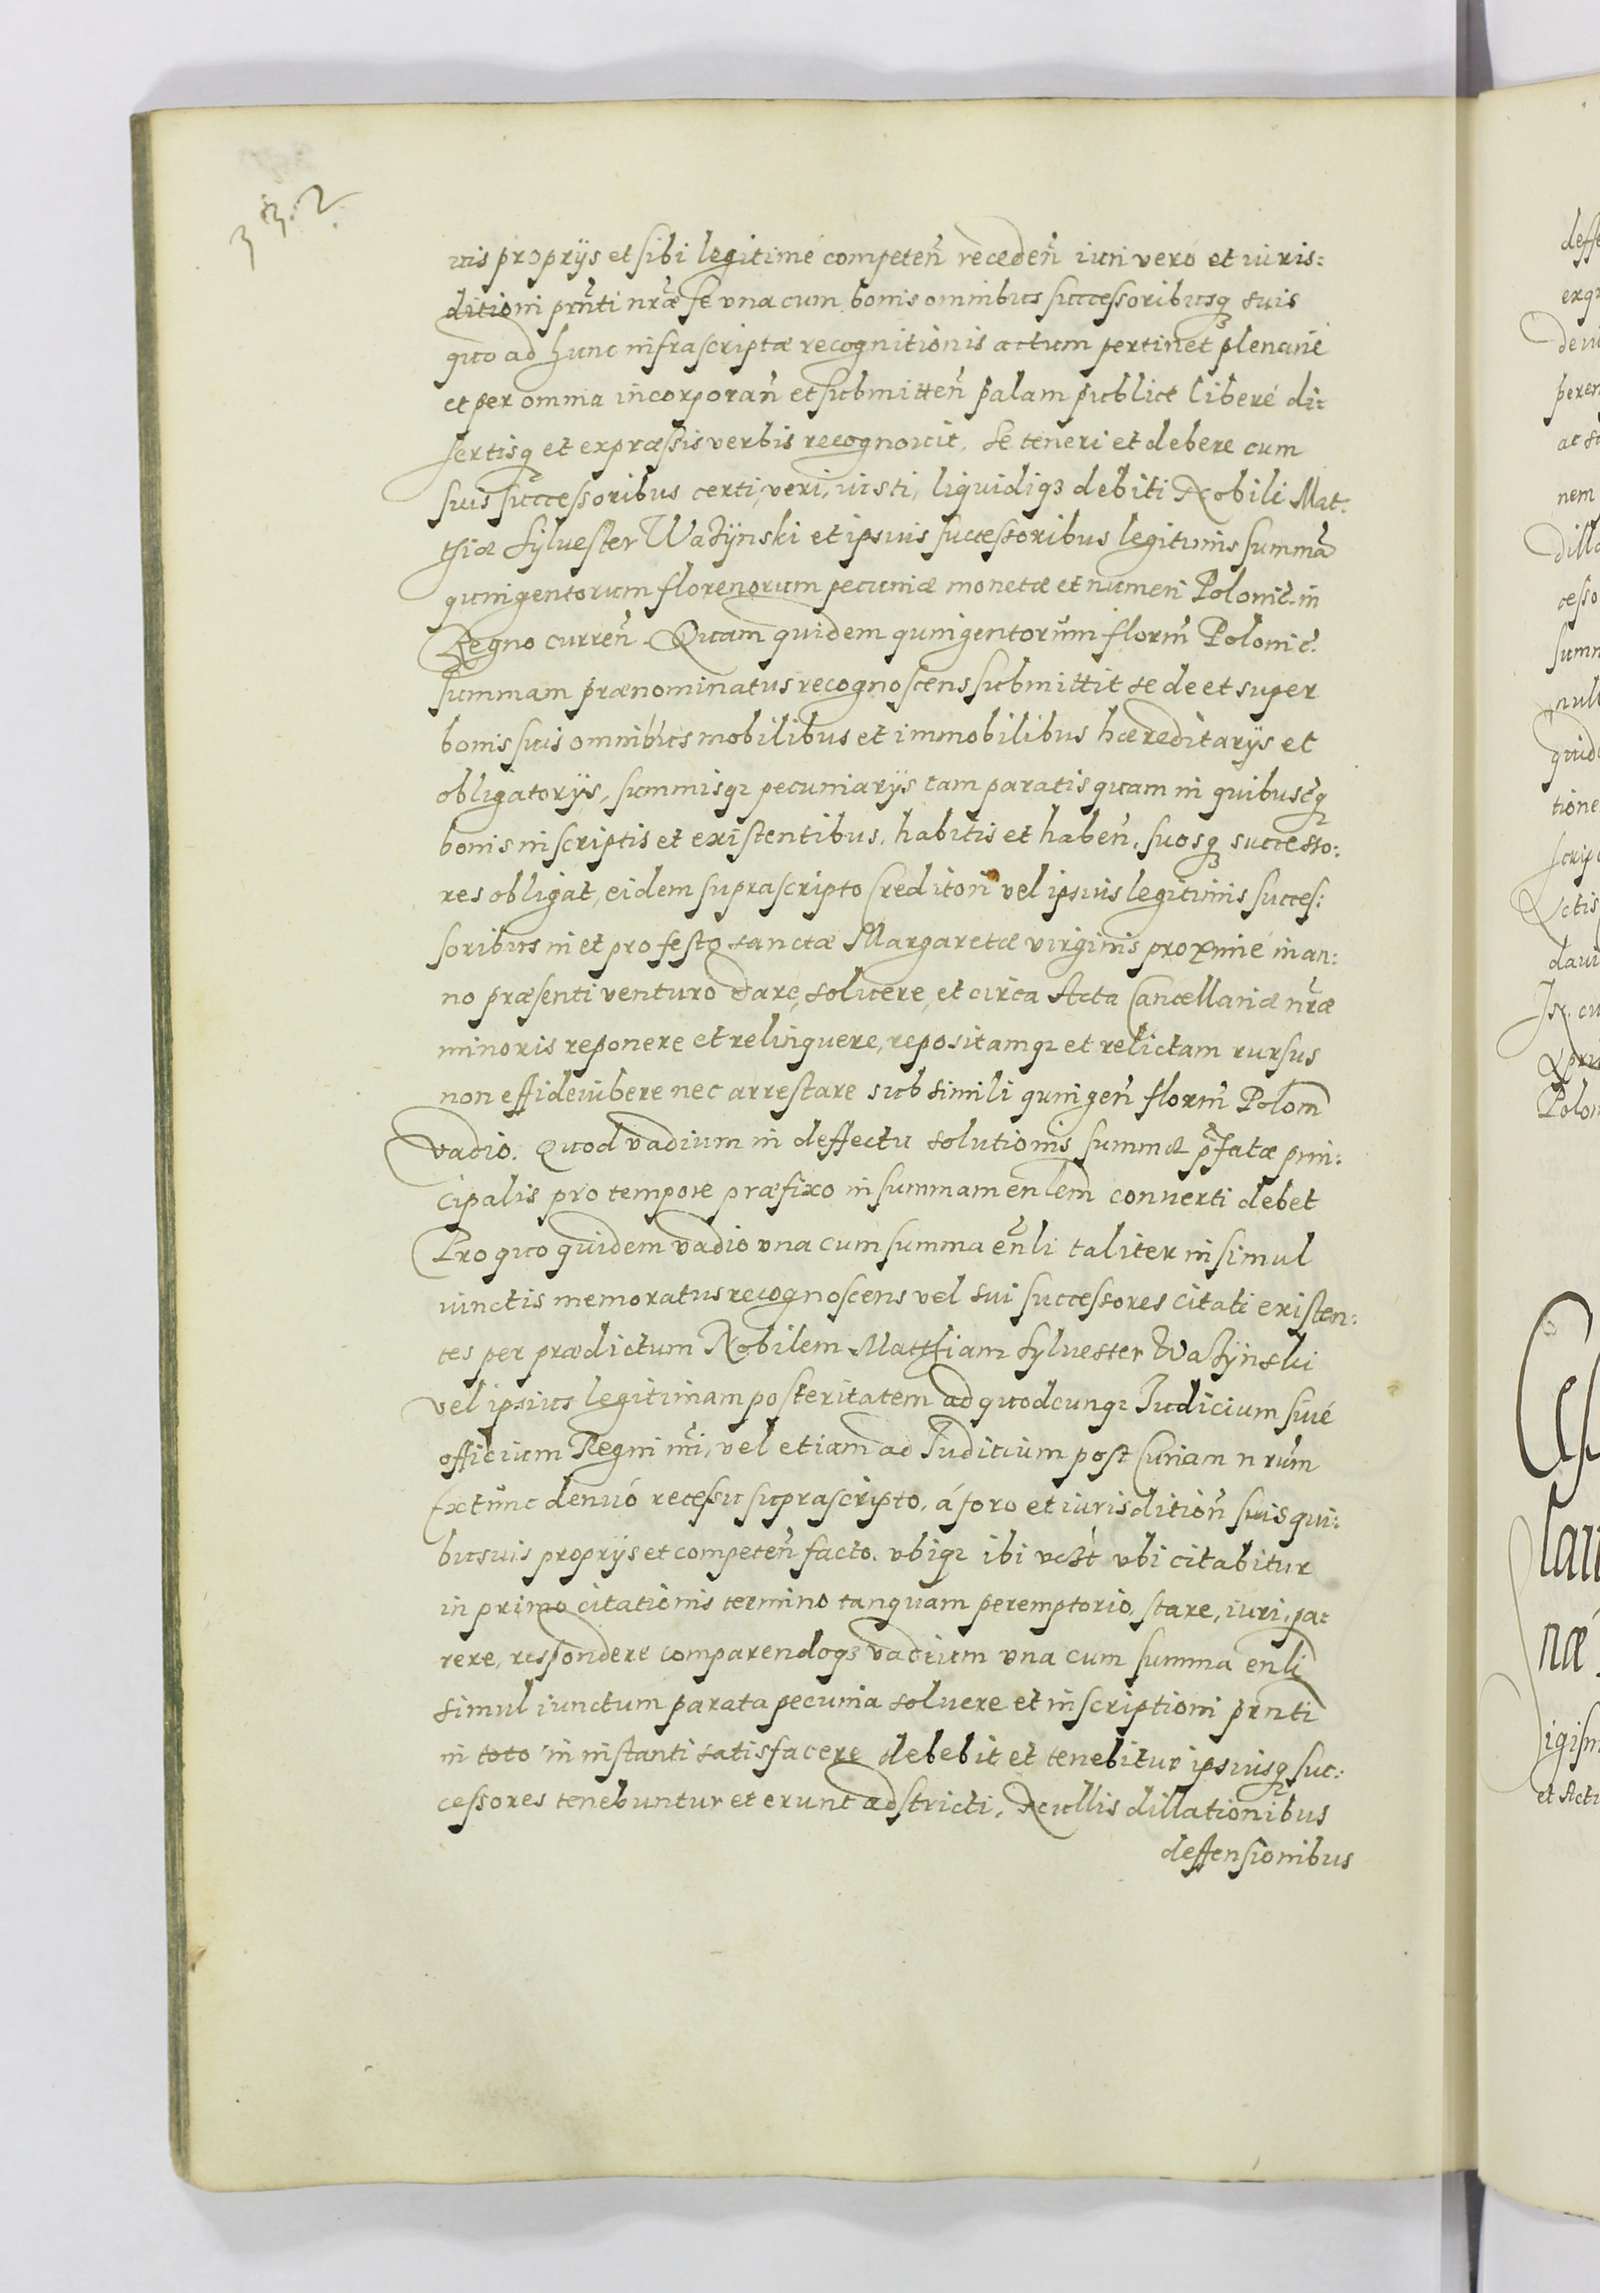 332
uis proprijs et sibi legitimé competeñ recedeñ iuri veró et iuris:
ditioni prñti nr̃æ se vna cum bonis omnibus successoribusq suis
quo ad hunc infrascriptæ recognitionis actum pertinet plenarié
et per omnia incorporañ et submitteñ palam publicé liberé di:
sertisq et expræssis verbis recognouit, se teneri et debere cum
suis successoribus certi, veri, iusti, liquidiq3 debiti Nobili Mat:
thiæ Syluester Wazÿnski et ipsius successoribus legitimis summã
quingentorum florenorum pecuniæ monetæ et numeri Polonic̃. in
Regno curreñ. Quam quidem quingentorum florm̃ Polonic̃.
summam prænominatus recognoscens submittit se de et super
bonis suis omnibus mobilibus et immobilibus hæreditarijs et
obligatorijs, summisq3 pecuniarijs tam paratis quam in quibuscq
bonis inscriptis et existentibus, habitis et habeñ, suosq successo:
res obligat, eidem suprascripto Creditori vel ipsius legitimis succes:
soribus in et pro festo sanctæ Margaretæ virginis proximé in an:
no præsenti venturo dare, soluere, et circa Acta Cancellariæ nr̃æ
minoris reponere et relinquere, repositamq3 et relictam rursus
non effideiubere nec arrestare sub simili quingeñ florm̃ Polom̃
vadio. Quod vadium in deffectu solutionis summæ p̃fatæ prin:
cipalis pro tempore præfixo in summam enlem̃ conuerti debet
Pro quo quidem vadio vna cum summa eñli taliter insimul
iunctis memoratus recognoscens vel sui successores citati existen:
tes per prædictum Nobilem Matthiam Syluester Wazÿnski
vel ipsius legitimam posteritatem ad quodcunq3 Iudicium siué
officium Regni nr̃i, vel etiam ad Iuditium post Curiam nrũm
Extunc denuó recessu suprascripto, á foro et iurisditioñ suis qui:
busuis proprijs et competeñ facto. vbiq3 ibi vcƶt vbi citabitur
in primo citationis termino tanquam peremptorio, stare, iuri, pa:
rere, respondere comparendoq3 vadium vna cum summa enli
simul iunctum parata pecunia soluere et inscriptioni prñti
in toto in instanti satisfacere debebit et tenebitur ipsiusq suc:
cessores tenebuntur et erunt adstricti, Nullis dillationibus
deffensionibus